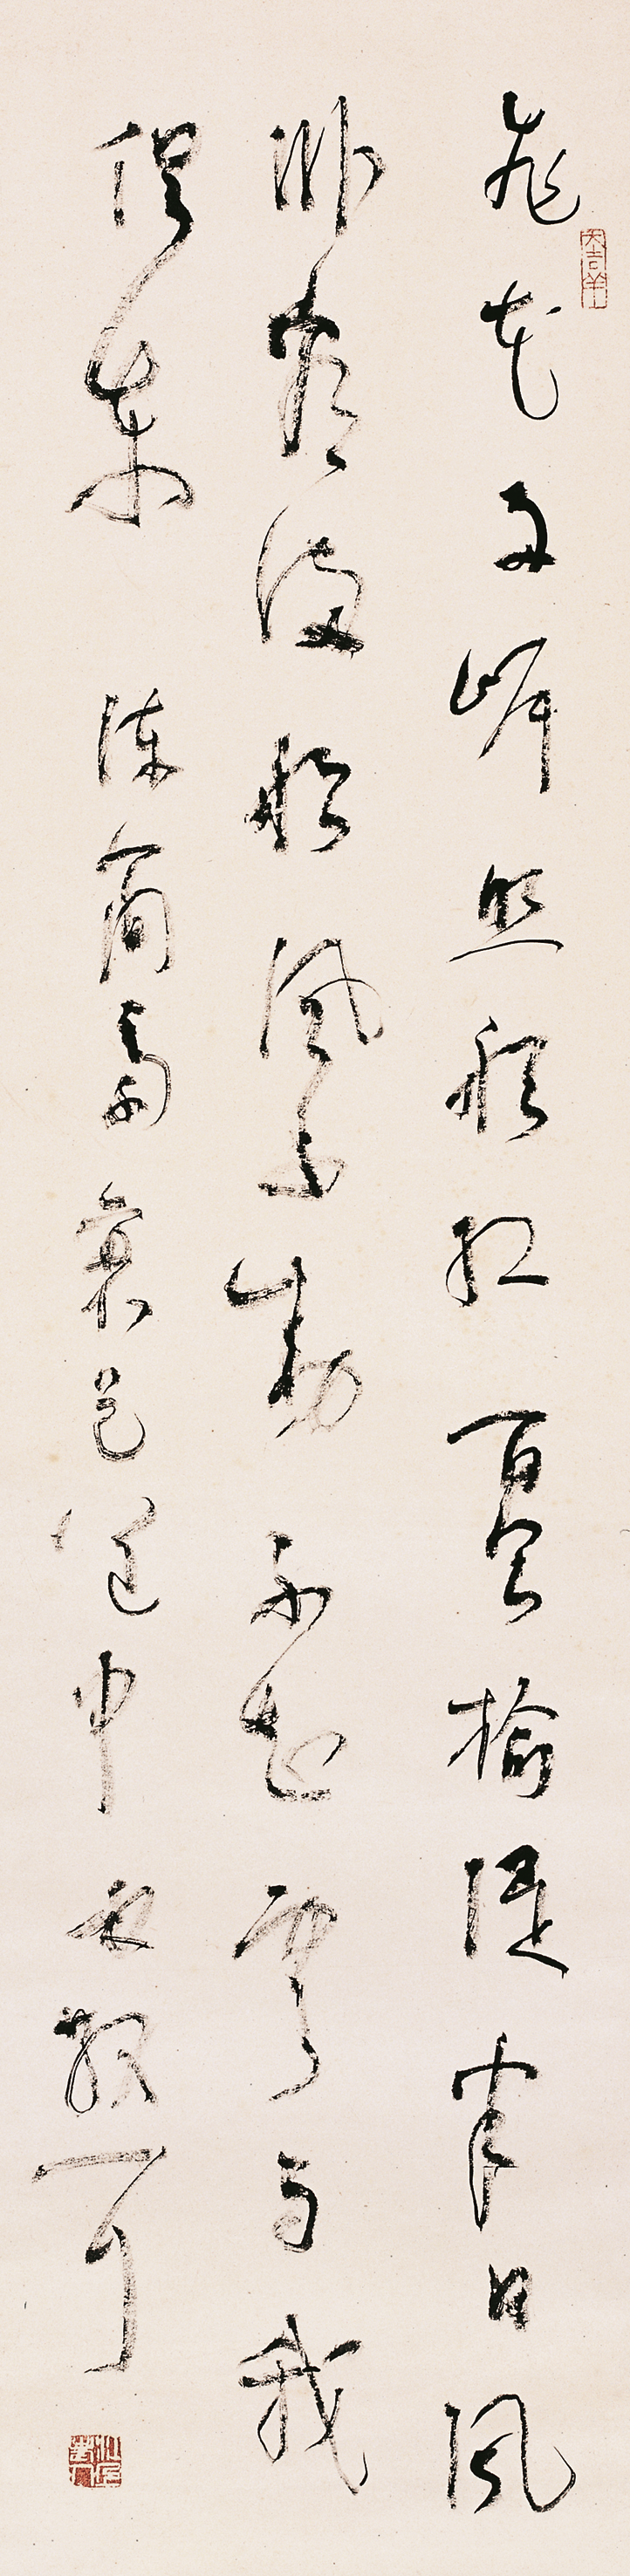 飛花兩岸照船紅百里榆堤半日風
卧看滿船雲不動不知雲與我
俱東 陳簡齋襄邑道中 林散耳
大吉羊